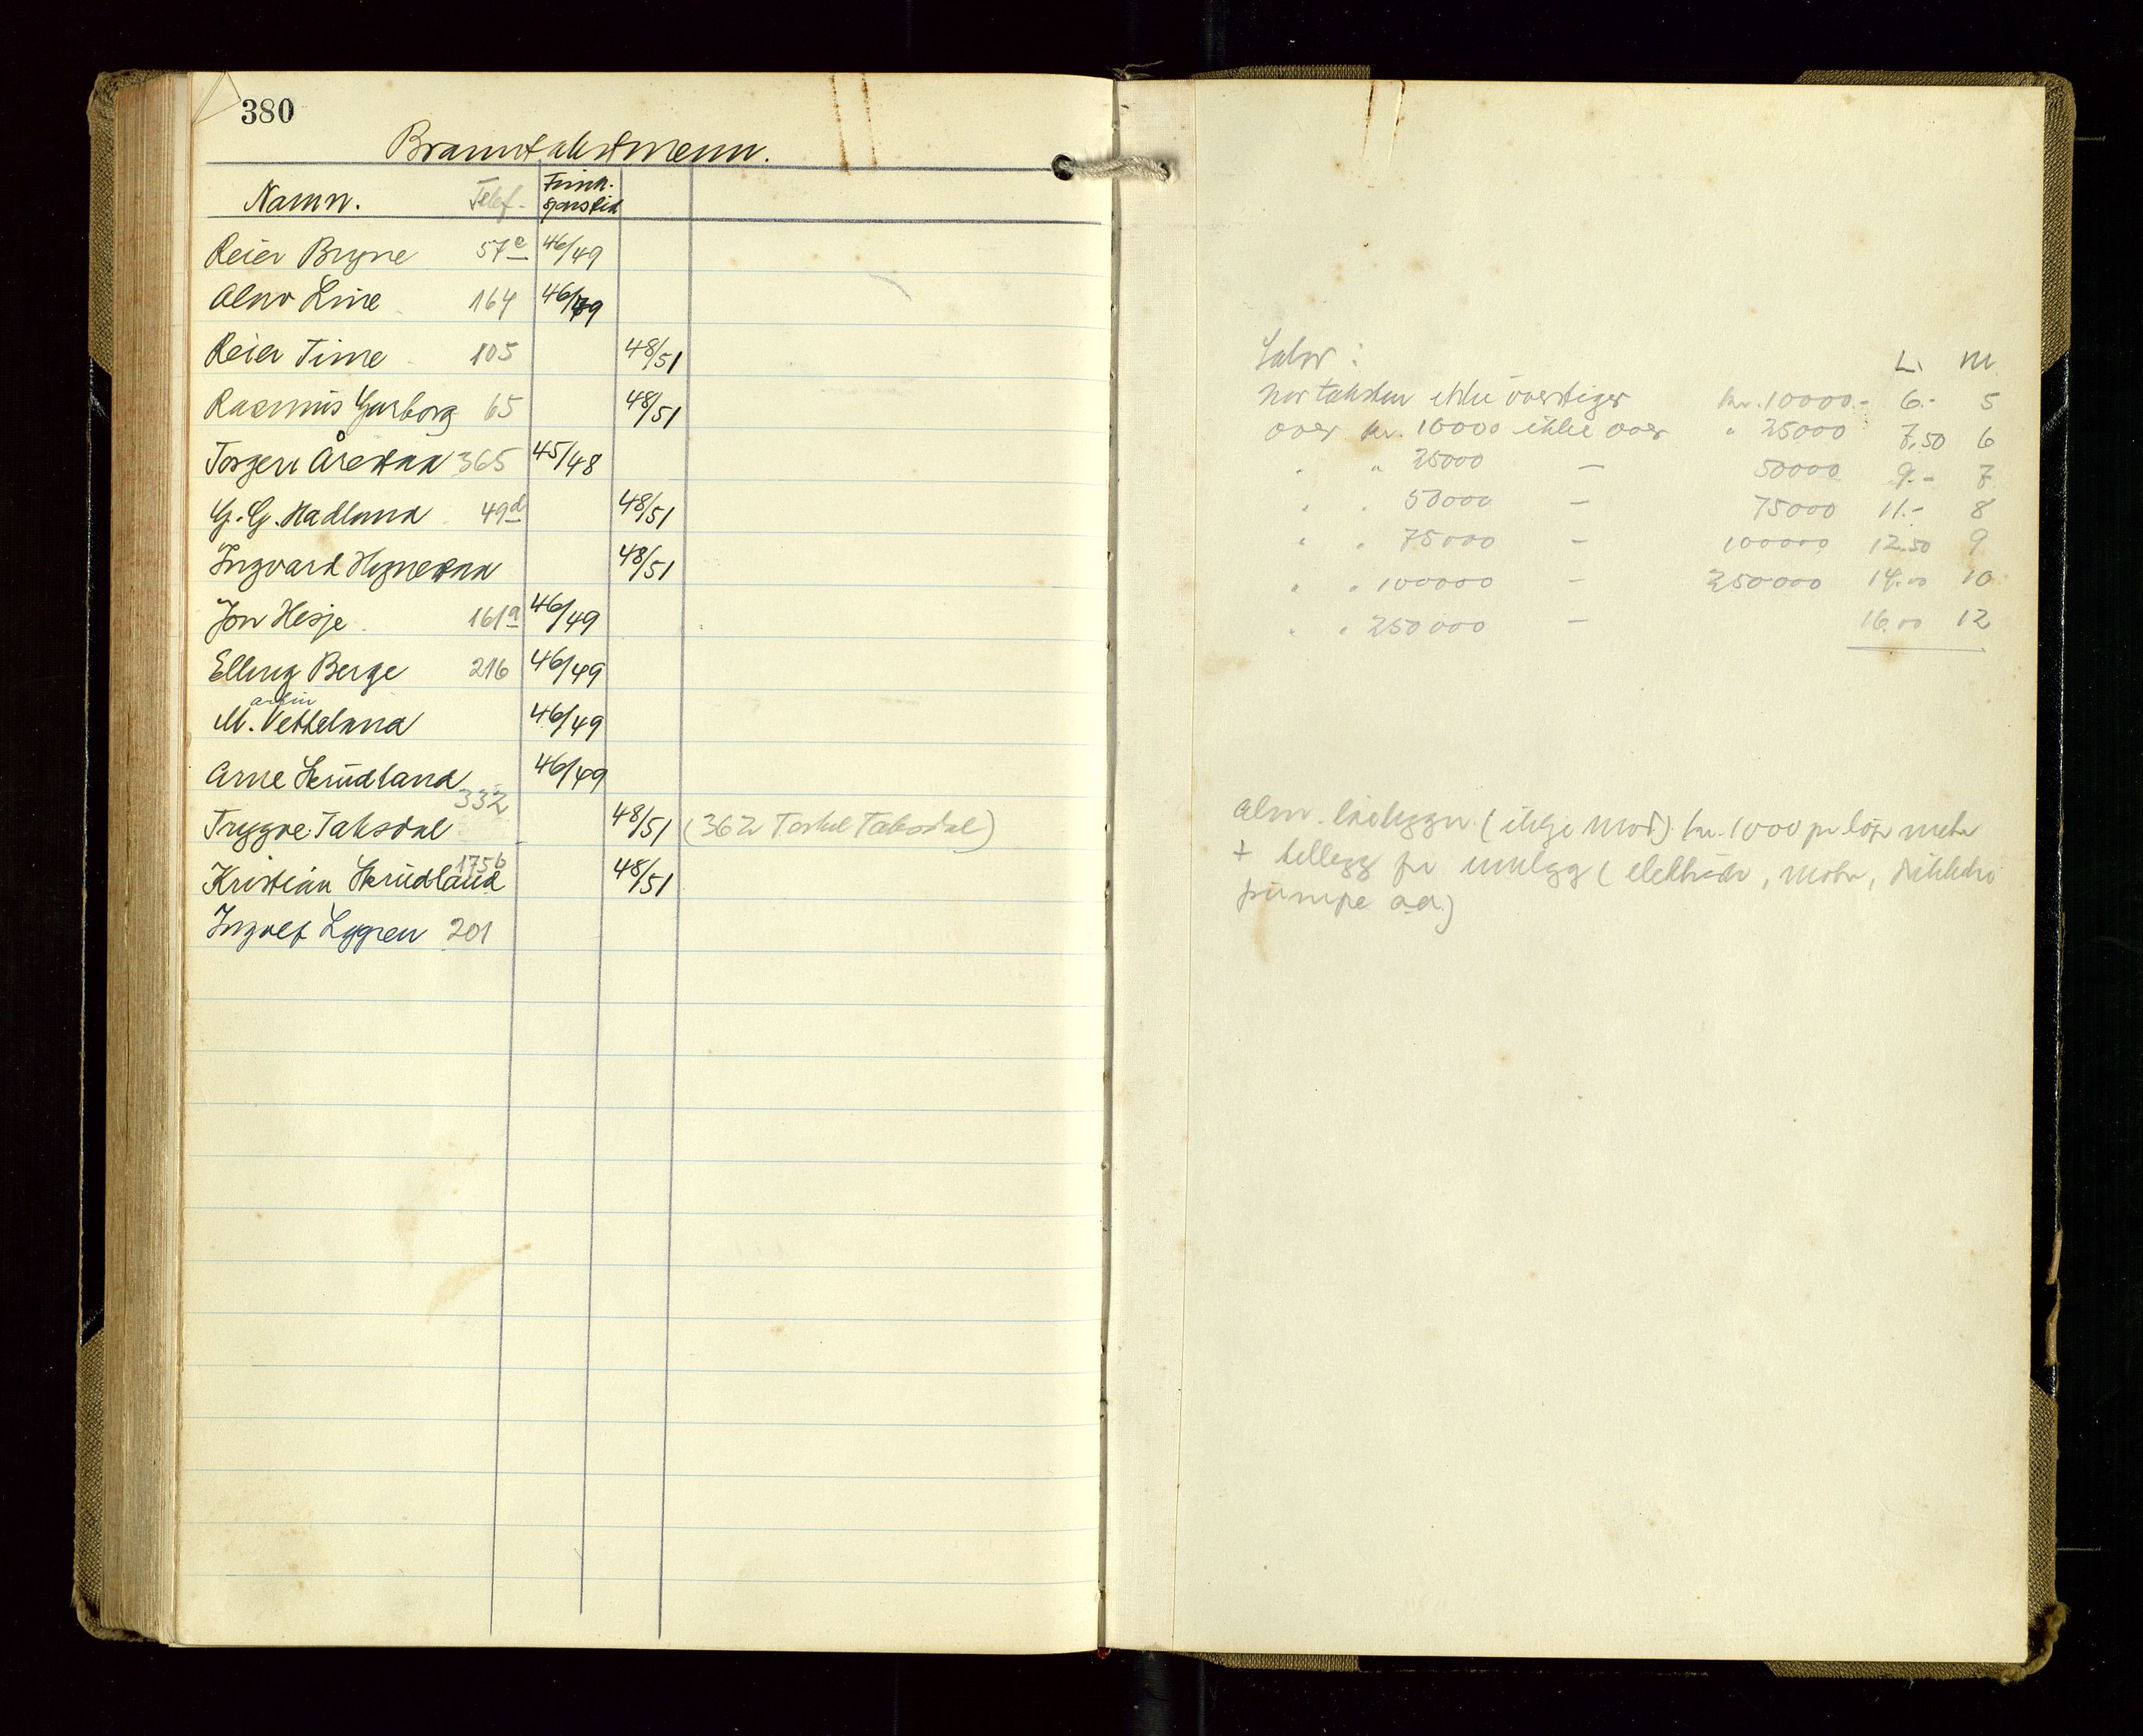 380
Branntakstmenn.
Namn. Telef. Funk. sjonstid
Reier Bryne 57c 46/49
Olav Line 164 46/49
Reier Time 105 48/51
Rasmus Garborg 65 48/51
Torger Årestad 365 45/48
G. G. Hadland 49d 48/51
Ingvard 48/51
Jon Hesje 161a 46/49
Elling Berge 216 46/49
M. Vetteland 46/49
Arne Skrudland 46/49
332
Trygve Taksdal 48/51 (362 Torkel Taksdal)
175b
Kristian Skrudland 48/51
Ingolf Lygren 201
L. M
Når taksten ikkje överstiger kr. 10000.- 6.- 5
over kr. 10000 ikkje over " 25000 7.50 6
" " 25000 — 50000 9.- 7
" " 50000 — 75000 11.- 8
" " 75000 — 100000 12.50 9
" " 100000 — 250000 14.00 10
" " 250000 — 16.00 12
Alm. (ikkje mod.) kr. 1000 pr löp. meter
+ tillegg for innlegg (elektrisk, motor,
pumpe o.a.)